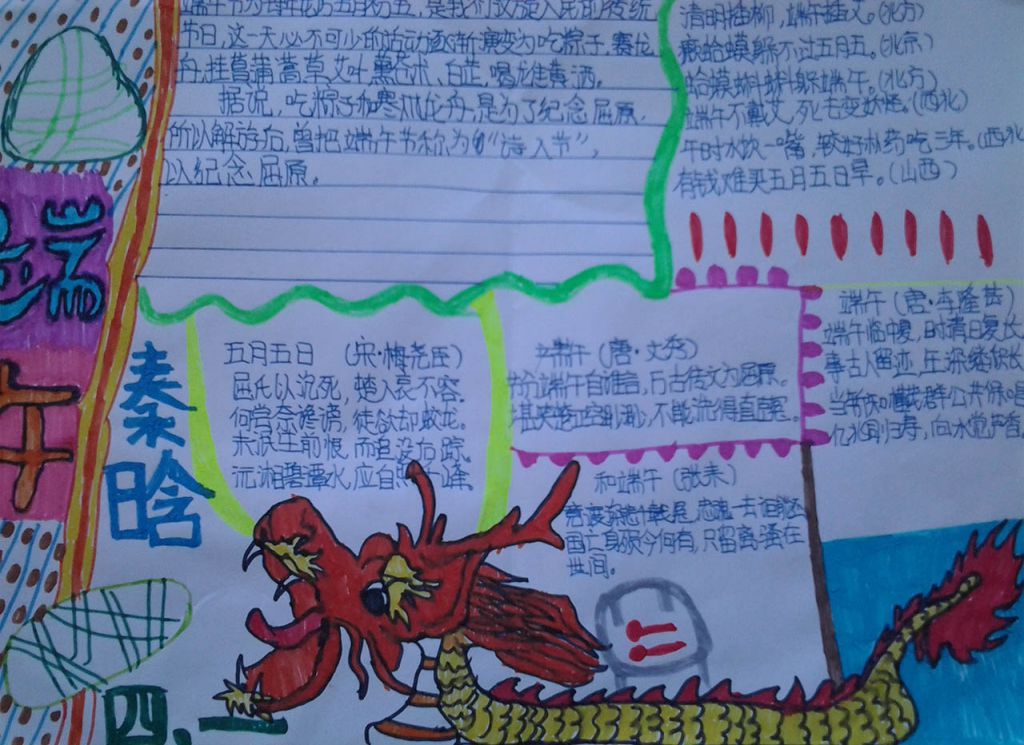 端午节为每年农历五月初五,是我们汉族人民的传统
节日,这一天必不可少的活动逐渐演变为吃粽子,赛龙
舟,挂菖蒲蒿草艾叶薰苍术、白芷,喝雄黄酒。
据说,吃粽子和赛龙舟,是为了纪念屈原,
所以解放后,曾把端午节称为“诗人节”,
以纪念屈原。
清明插柳,端午插艾。(北方)
癞蛤蟆躲不过五月五。(北京)
蛤蟆蝌蚪躲端午。(北方)
端午不戴艾,死去变妖怪。(西北)
午时水饮一嘴,较好补药吃三年。(西北
有钱难买五月五日旱。(山西)
端
午
秦
晗
四、一
五月五日 (宋·梅尧臣)
屈氏以沉死,楚人哀不容。
何尝奈谗谤,徒欲却蛟龙。
未泯生前恨,而追没后踪。
沅湘碧潭水,应自照千峰。
端午(唐·文秀)
节分端午自谁言,万古传文为屈原。
不能洗得直臣冤。
端午(唐·李隆基)
端午临中夏,时清日复长
当年
向水觉声香
和端午(张耒)
国亡身殒今何有,只留离骚在
世间。